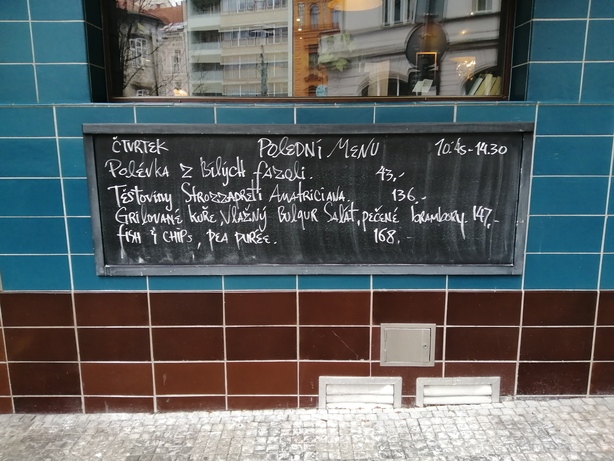 ČTVRTEK POLEDNÍ MENU 10:45-14.30
POLÉVKA Z BÍLÝCH FAZOLÍ. 43,-
TĚSTOVINY STROZZAPRETI AMATRICIANA. 136.-
GRILOVANÉ KUŘE, VLAŽNÝ BULGUR SALÁT, PEČENÉ brambory. 147,-
FISH & CHIPS, PEA PUREE. 168,-